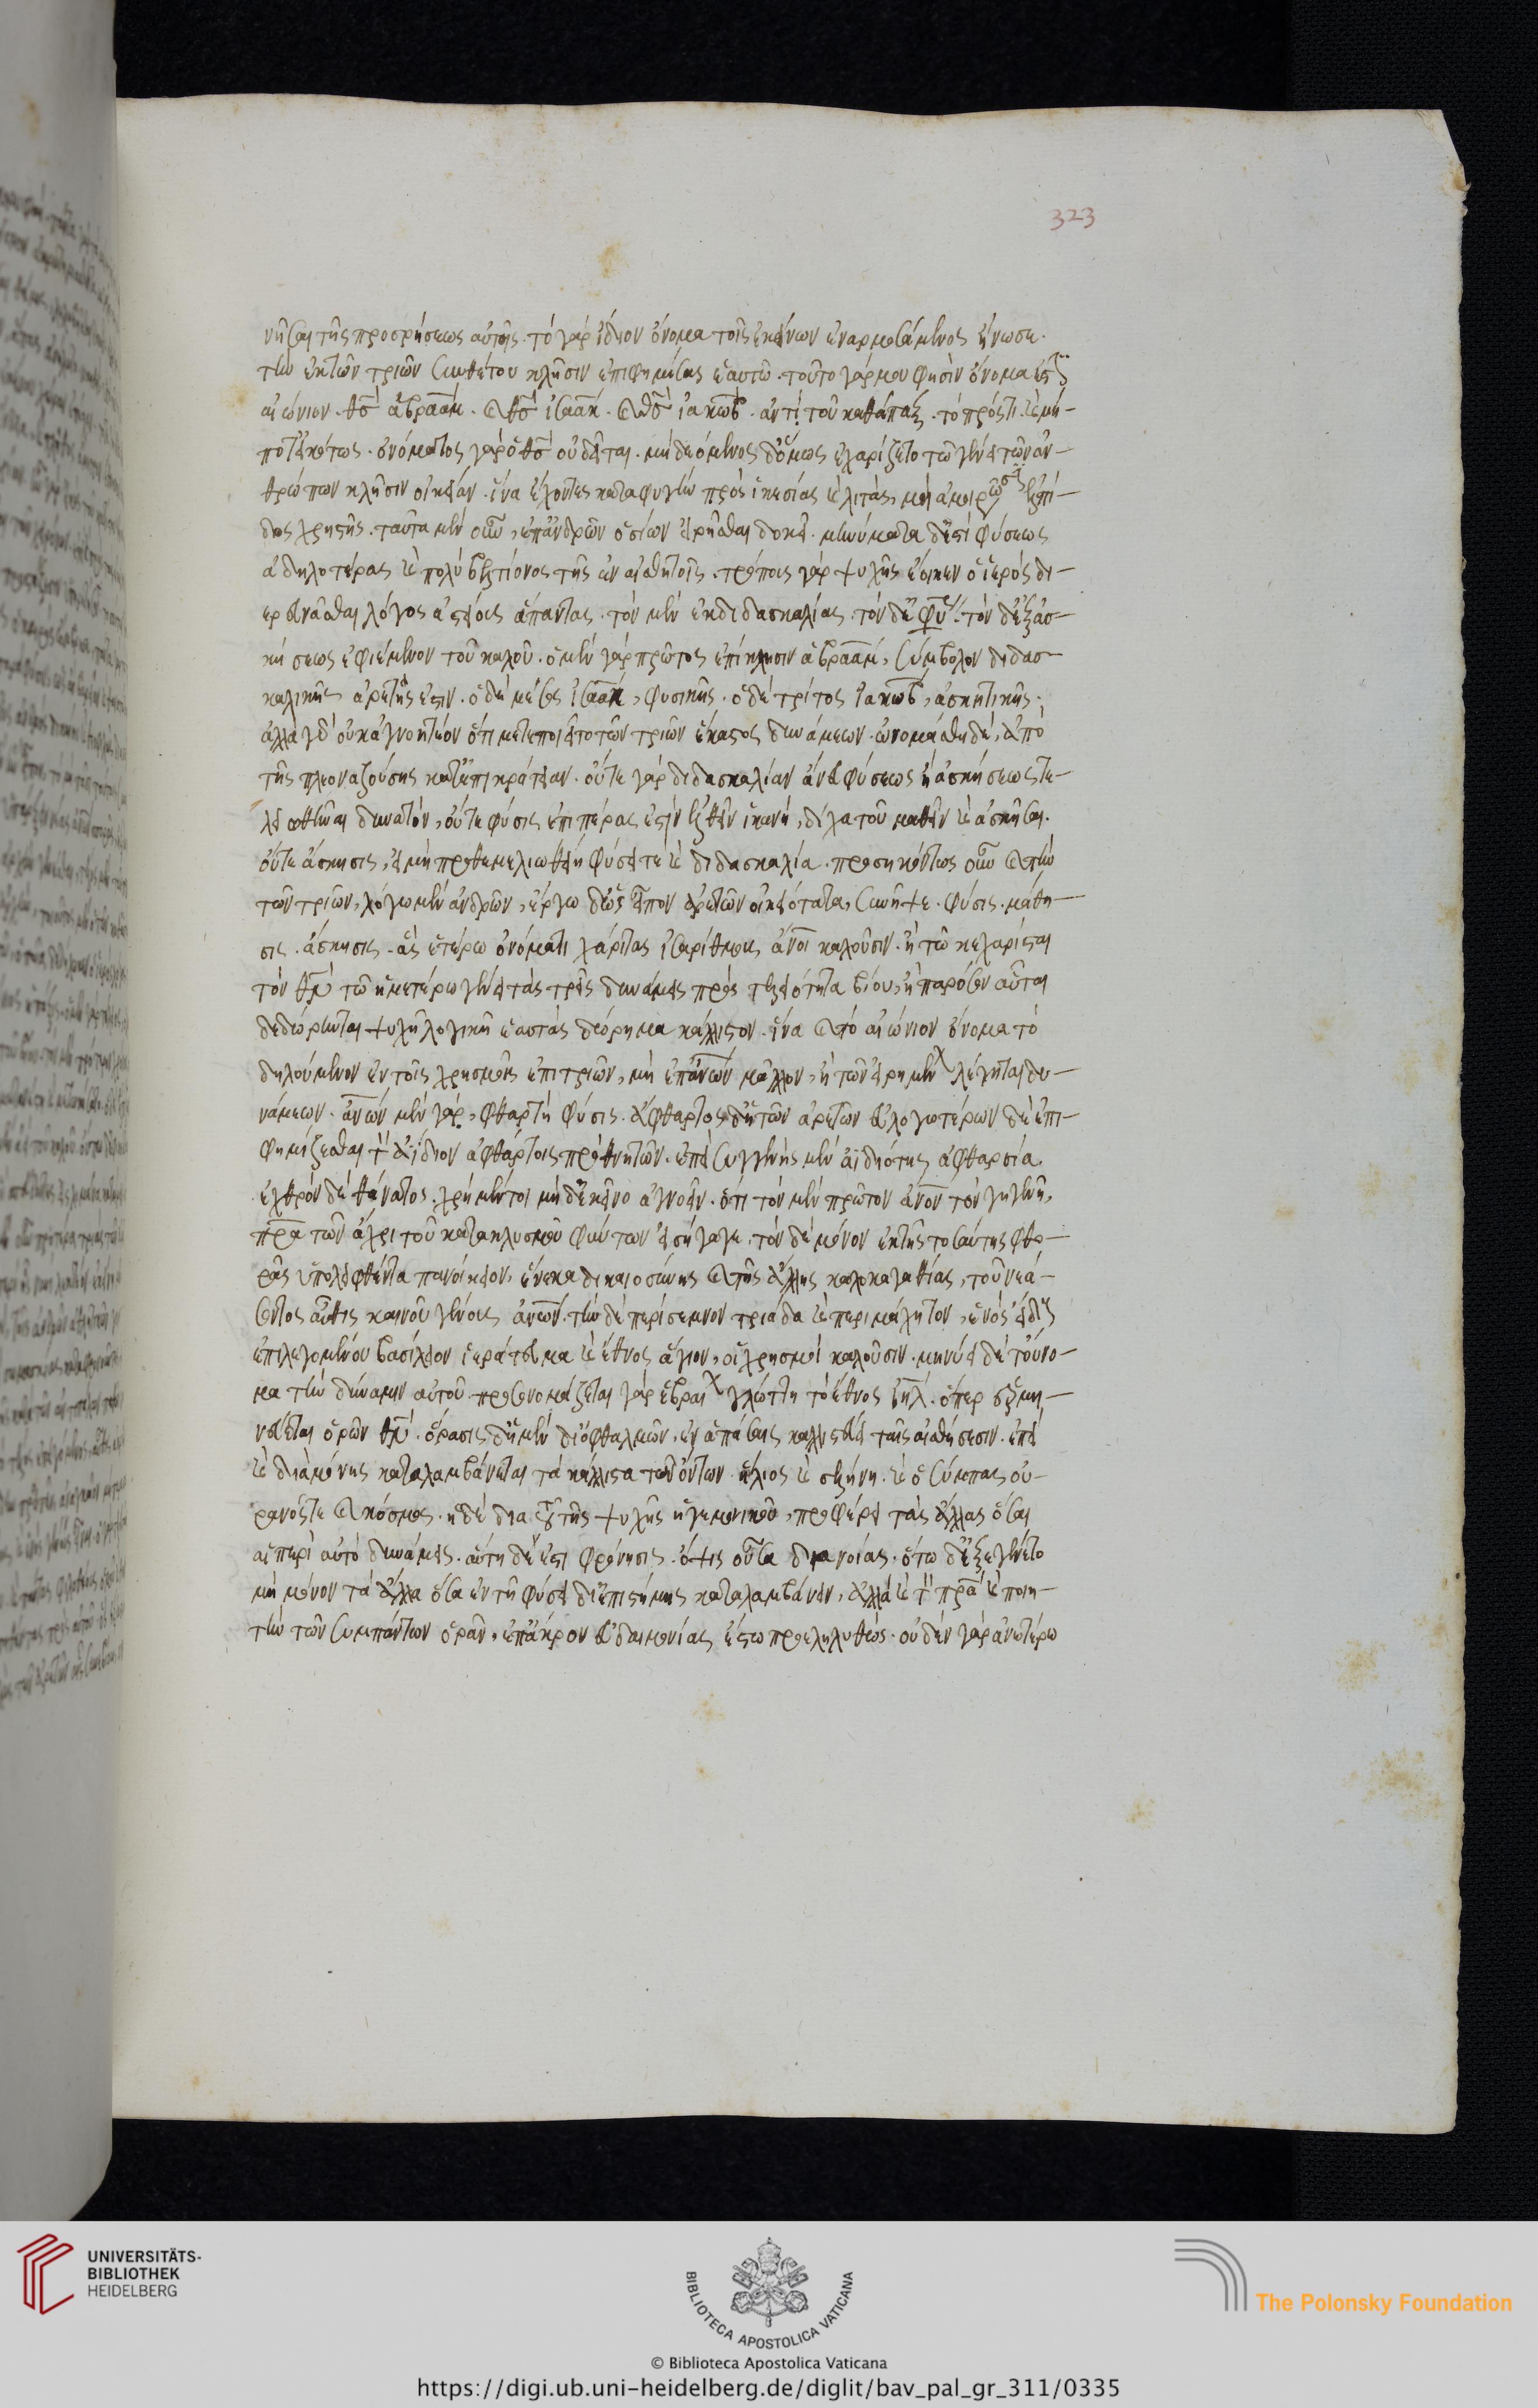 323
νῆσαι τῆς προσρήσεως αὐτοῖς. τὸ γὰρ ἴδιον ὄνομα τοῖς ἐκείνων ἐναρμοσάμενος ἥνωσε.
τὴν ἐκ τῶν τριῶν συνθέτου κλῆσιν ἐπιφημίσας ἑαυτῶ. τοῦτο γάρ μου φησὶν ὄνομα ἐστὶν
αἰώνιον. θσ ἀβραὰμ. καὶ θσ ἰσαάκ. καὶ θσ ἰακώβ. ἀντὶ τοῦ καθάπαξ. τὸ πρός τι. καὶ μή-
ποτ' εἰκότως. ὀνόματος γὰρ ὁ θσ οὐ δεῖται. μὴ δεόμενος δ' ὅμως ἐχαρίζετο τῶ γένει τῶν ἀν-
θρώπων κλῆσιν οἰκείαν. ἵνα ἔχοντες καταφυγὴν πρὸς ἱκεσίας καὶ λιτάς, μὴ ἀμοιρῶσιν ἐλπί-
δος χρηστῆς. ταῦτα μὲν οὖν, ἐπ' ἀνδρῶν ὁσίων εἰρῆσθαι δοκεῖ. μηνύματα δ' ἐστὶ φύσεως
ἀδηλοτέρας καὶ πολὺ βελτίονος τῆς ἐν αἰσθητοῖς. τρόποις γὰρ ψυχῆς ἔοικεν ὁ ἱερὸς δι-
ερευνᾶσθαι λόγος ἀστείοις ἅπαντας. τὸν μὲν ἐκ διδασκαλίας. τὸν δ' ἐκ φύ. τὸν δ' ἐξ ἀσ-
κήσεως ἐφιέμενον τοῦ καλοῦ. ὁ μὲν γὰρ πρῶτος ἐπίκλησιν ἀβραάμ, σύμβολον διδασ-
καλικῆς ἀρετῆς ἐστιν. ὁ δὲ μέσος ἰσαάκ, φυσικῆς. ὁ δὲ τρίτος ἰακώβ, ἀσκητικῆς.
ἀλλὰ γὰρ οὐκ ἀγνοητέον ὅτι μετεποιεῖτο τῶν τριῶν ἕκαστος δυνάμεων. ὠνομάσθη δὲ, ἀπὸ
τῆς πλεοναζούσης κατ' ἐπικράτειαν. οὔτε γὰρ διδασκαλίαν ἄνευ φύσεως ἢ ἀσκήσεως τε-
λειωθῆναι δυνατὸν, οὔτε φύσις ἐπὶ πέρας ἐστὶν ἐλθεῖν ἱκανὴ, δίχα τοῦ μαθεῖν καὶ ἀσκῆσαι.
οὔτε ἄσκησις, εἰ μὴ προθεμελιωθείη φύσει τὲ καὶ διδασκαλία. προσηκόντως οὖν καὶ τὴν
τῶν τριῶν, λόγω μὲν ἀνδρῶν, ἔργω δ' ὡς εἶπον ἀρετῶν οἰκειότατα, συνῆψε. φύσις. μάθη-
σις. ἄσκησις. ἃς ἑτέρω ὀνόματι χάριτας ἰσαρίθμους ἄνοι καλοῦσιν. ἢ τῶ κεχαρίσται
τὸν θν τῶ ἡμετέρω γένει τὰς τρεῖς δυνάμεις πρὸς τελειότητα βίου, ἢ παρόσον αὗται
δεδώρηνται ψυχῆ λογικῆ ἑαυτὰς δώρημα κάλλιστον. ἵνα καὶ τὸ αἰώνιον ὄνομα τὸ
δηλούμενον ἐν τοῖς χρησμοῖς ἐπὶ τριῶν, μὴ ἐπ' ἀνων μᾶλλον, ἢ τῶν εἰρημένων λέγηται δυ-
νάμεων. ἀνων μὲν γὰρ, φθαρτὴ φύσις. ἄφθαρτος δ' ἡ τῶν ἀρετῶν εὐλογωτέρων δὲ ἐπι-
φημίζεσθαι τὸ ἀίδιον ἀφθάρτοις πρὸ θνητῶν. ἐπεὶ συγγενὴς μὲν ἀϊδιότης ἀφθαρσία.
ἐχθρὸν δὲ θάνατος. χρὴ μέντοι μὴ δ' ἐκεῖνο ἀγνοεῖν. ὅτι τὸν μὲν πρῶτον ἄνον τὸν γηγενῆ,
πρα τῶν ἄχρι τοῦ κατακλυσμοῦ φύντων εἰσήγαγε. τὸν δὲ μόνον ἐκ τῆς τοσαύτης φθο-
ρᾶς ὑπολειφθέντα πανοίκιον, ἕνεκα δικαιοσύνης καὶ τῆς ἄλλης καλοκαγαθίας, τοῦ νεά-
σοντος αὖθις καινοῦ γένους ἀνων. τὴν δὲ περίσεμνον τριάδα καὶ περιμάχητον, ἑνὸς εἴδους
ἐπιλεγομένου βασίλειον ἱεράτευμα καὶ ἔθνος ἅγιον, οἱ χρησμοὶ καλοῦσιν. μηνύει δὲ τοὔνο-
μα τὴν δύναμιν αὐτοῦ. προσονομάζεται γὰρ ἑβραίων γλώττη τὸ ἔθνος ἰηλ. ὅπερ ἑρμη-
νεύεται ὁρῶν θν. ὅρασις δ' ἡ μὲν δι' ὀφθαλμῶν, ἐν ἁπάσαις καλλιστεύει ταῖς αἰσθήσεσιν. ἐπεὶ
καὶ διὰ μόνης καταλαμβάνεται τὰ κάλλιστα τῶν ὄντων. ἥλιος καὶ σελήνη. καὶ ὁ σύμπας οὐ-
ρανός τε καὶ κόσμος. ἡ δὲ διὰ τοῦ τῆς ψυχῆς ἡγεμονικοῦ, προφέρει τὰς ἄλλας ὅσαι
αἱ περὶ αὐτὸ δυνάμεις. αὕτη δέ ἐστι φρόνησις. ὄψις οὖσα διανοίας. ὅτω δ' ἐξεγένετο
μὴ μόνον τὰ ἄλλα ὅσα ἐν τῆ φύσει δι' ἐπιστήμης καταλαμβάνειν, ἀλλὰ καὶ τὸν πρα καὶ ποιη-
τὴν τῶν συμπάντων ὁρᾶν, ἐπ' ἄκρον εὐδαιμονίας ἴστω προεληλυθώς. οὐδὲν γὰρ ἀνωτέρω
UNIVERSITÄTS-
BIBLIOTHEK
HEIDELBERG
BIBLIOTECA APOSTOLICA VATICANA
© Biblioteca Apostolica Vaticana
The Polonsky Foundation
https://digi.ub.uni-heidelberg.de/diglit/bav_pal_gr_311/0335